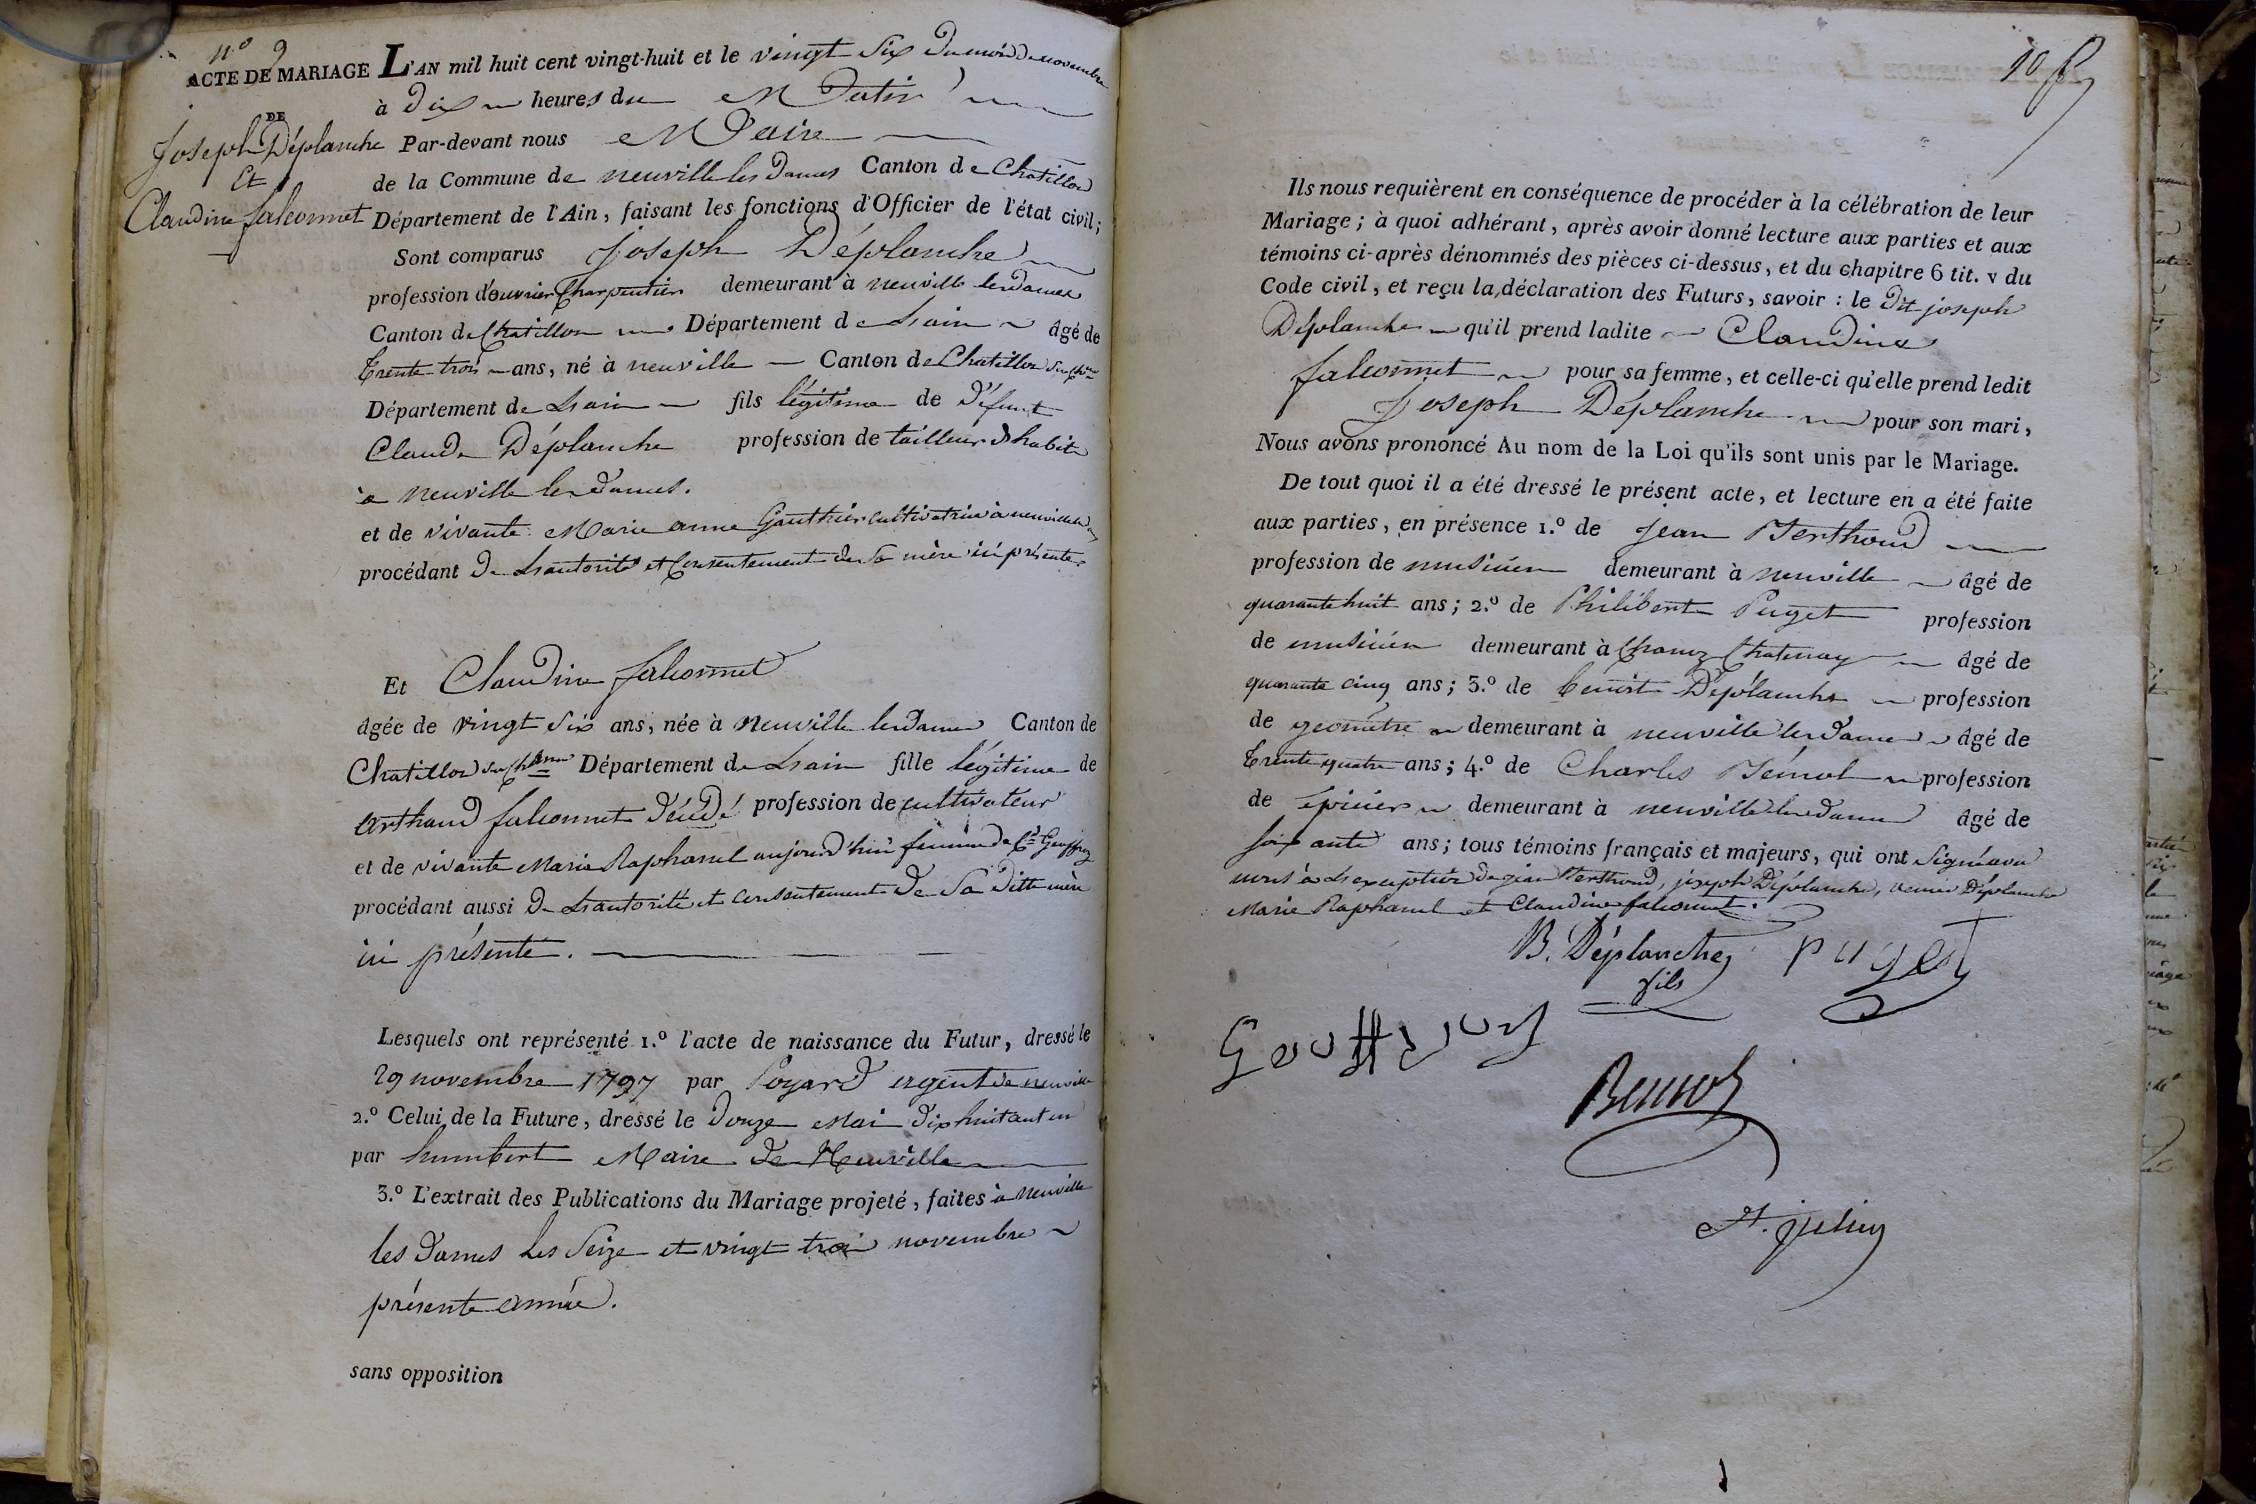 n° 9
ACTE DE MARIAGE
DE
Joseph Déplanche
Et
Claudine falconnet
L'AN mil huit cent vingt-huit et le vingt Six du mois de novembre
à dix heures du Matin
Par-devant nous Maire
de la Commune de neuville les Dames Canton de Chatillon
Département de l'Ain, faisant les fonctions d'Officier de l'état civil;
Sont comparus Joseph Déplanche
profession d'ouvrier Charpentier demeurant à neuville les dames
Canton de Chatillon Département de Lain âgé de
trente trois ans, né à neuville Canton de Chatillon Sur Chne
Département de Lain fils légitime de Défunt
Claude Déplanche profession de tailleur d'habits
à neuville les dames.
et de vivante Marie anne Gauthier cultivatrice à neuville
procédant de Lautorité et Consentement de Sa mère ici présente
Et Claudine falconnet
âgée de vingt Six ans, née à neuville les dames Canton de
Chatillon Sur Département de Lain fille légitime de
arthaud falconnet décédé profession de cultivateur
et de vivante Marie Raphanel aujourd'hui femme de
procédant aussi de Lautorité et consentement de Sa ditte mère
ici présente.
Lesquels ont représenté 1.° l'acte de naissance du Futur, dressé le
29 novembre 1797 par Poyard agent de neuville
2.° Celui de la Future, dressé le douze Mai dix huit cent un
par humbert Maire de Neuville
3.° L'extrait des Publications du Mariage projeté, faites à neuville
les dames les Seize et vingt trois novembre
présente année.
sans opposition
10
Ils nous requièrent en conséquence de procéder à la célébration de leur
Mariage; à quoi adhérant, après avoir donné lecture aux parties et aux
témoins ci-après dénommés des pièces ci-dessus, et du chapitre 6 tit. v du
Code civil, et reçu la déclaration des Futurs, savoir : le dit joseph
Déplanche qu'il prend ladite Claudine
falconnet pour sa femme, et celle-ci qu'elle prend ledit
Joseph Déplanche pour son mari,
Nous avons prononcé Au nom de la Loi qu'ils sont unis par le Mariage.
De tout quoi il a été dressé le présent acte, et lecture en a été faite
aux parties, en présence 1.° de Jean Berthoud
profession de musicien demeurant à neuville âgé de
quarante huit ans; 2.° de Philibert Puget profession
de musicien demeurant à Chanoz Chatenay âgé de
quarante cinq ans; 3.° de benoit Déplanche profession
de géomètre demeurant à neuville les dames âgé de
trente quatre ans; 4.° de Charles profession
de épicier demeurant à neuville les dames âgé de
soixante ans; tous témoins français et majeurs, qui ont Signé avec
nous à Lexception de jean Berthoud, joseph Déplanche, Déplanche
Marie Raphanel et Claudine falconnet.
B. Déplanche
fils
Puget
St. julien